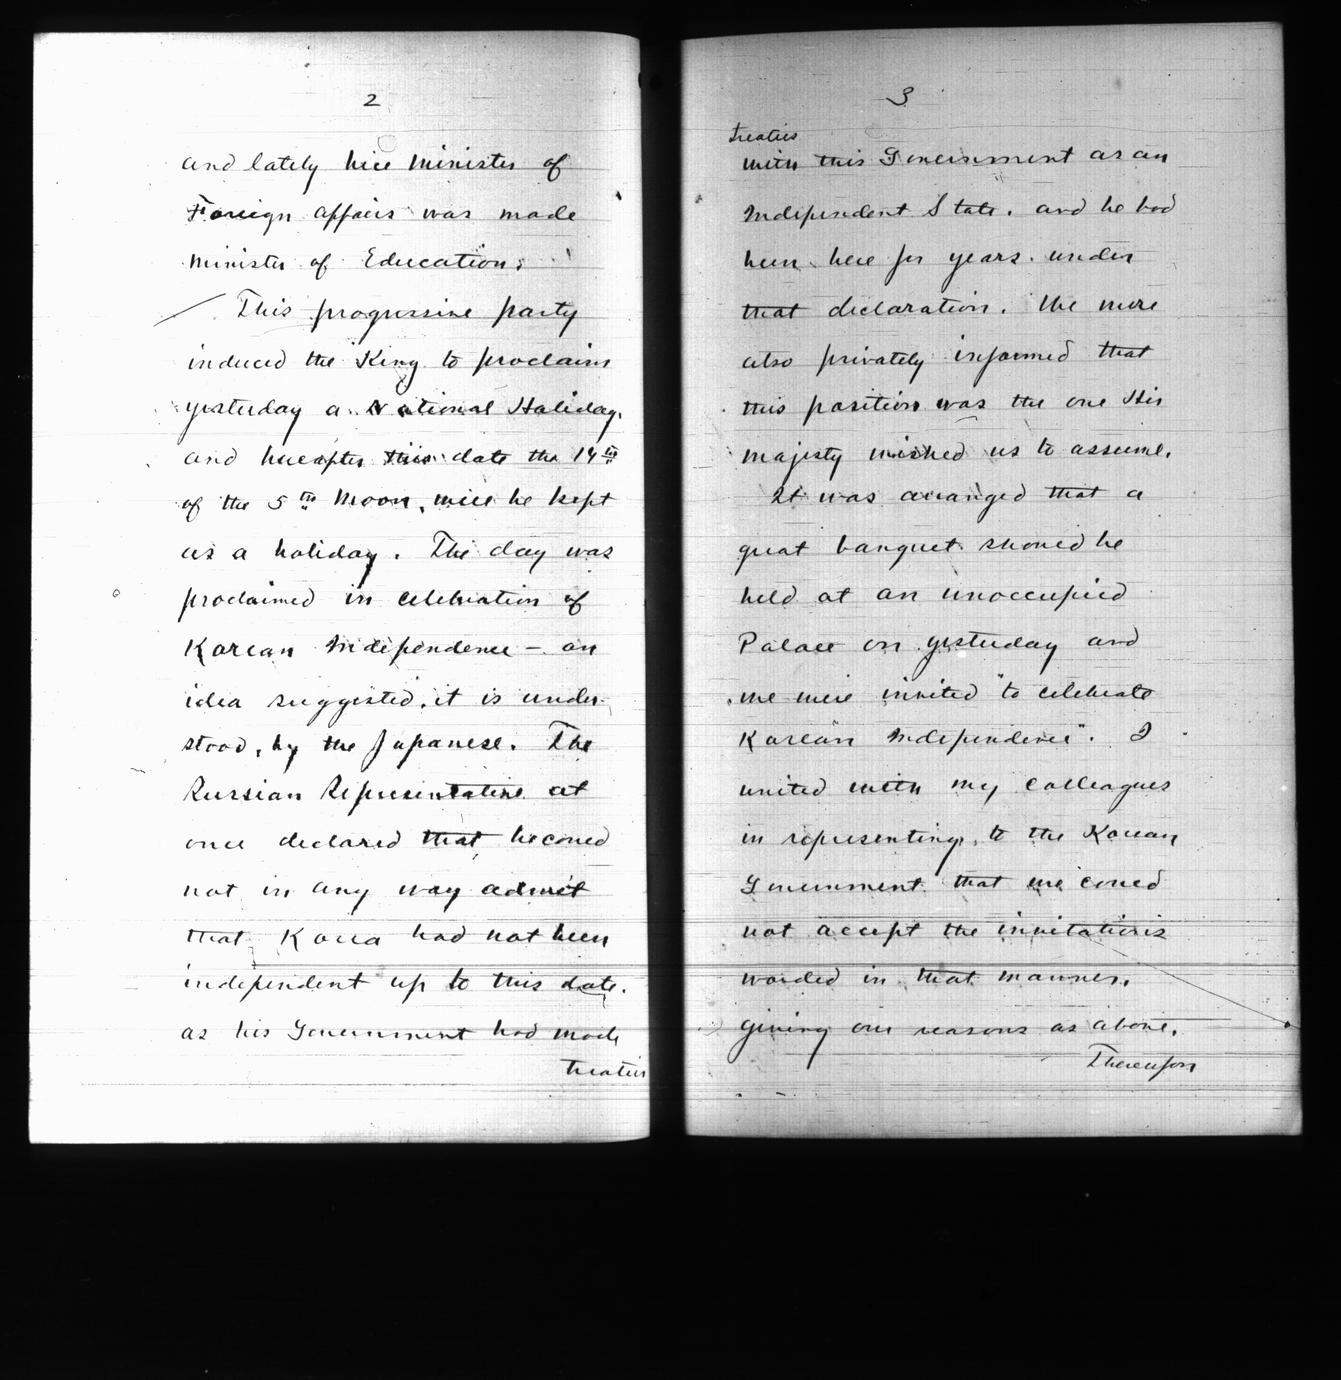 2
and lately Vice Minister of
Foreign affairs was made
Minister of Education.
This progressive party
induced the King to proclaim
yesterday a National Holiday,
and hereafter this date the 14th
of the 5th Moon, will be kept
as a holiday. The day was
proclaimed in celebration of
Korean Independence - an
idea suggested, it is under-
stood, by the Japanese. The
Russian Representative at
once declared that he could
not in any way admit
that Korea had not been
independent up to this date.
as his Government had made
treaties
3
treaties
with this Government as an
Independent State. and he had
been here for years under
that declaration. We were
also privately informed that
this position was the one His
Majesty wished us to assume.
It was arranged that a
great banquet should be
held at an unoccupied
Palace on yesterday and
we were invited "to celebrate
Korean Independence". I
united with my Colleagues
in representing, to the Korean
Government that we could
not accept the invitations
worded in that manner,
giving our reasons as above.
Thereupon